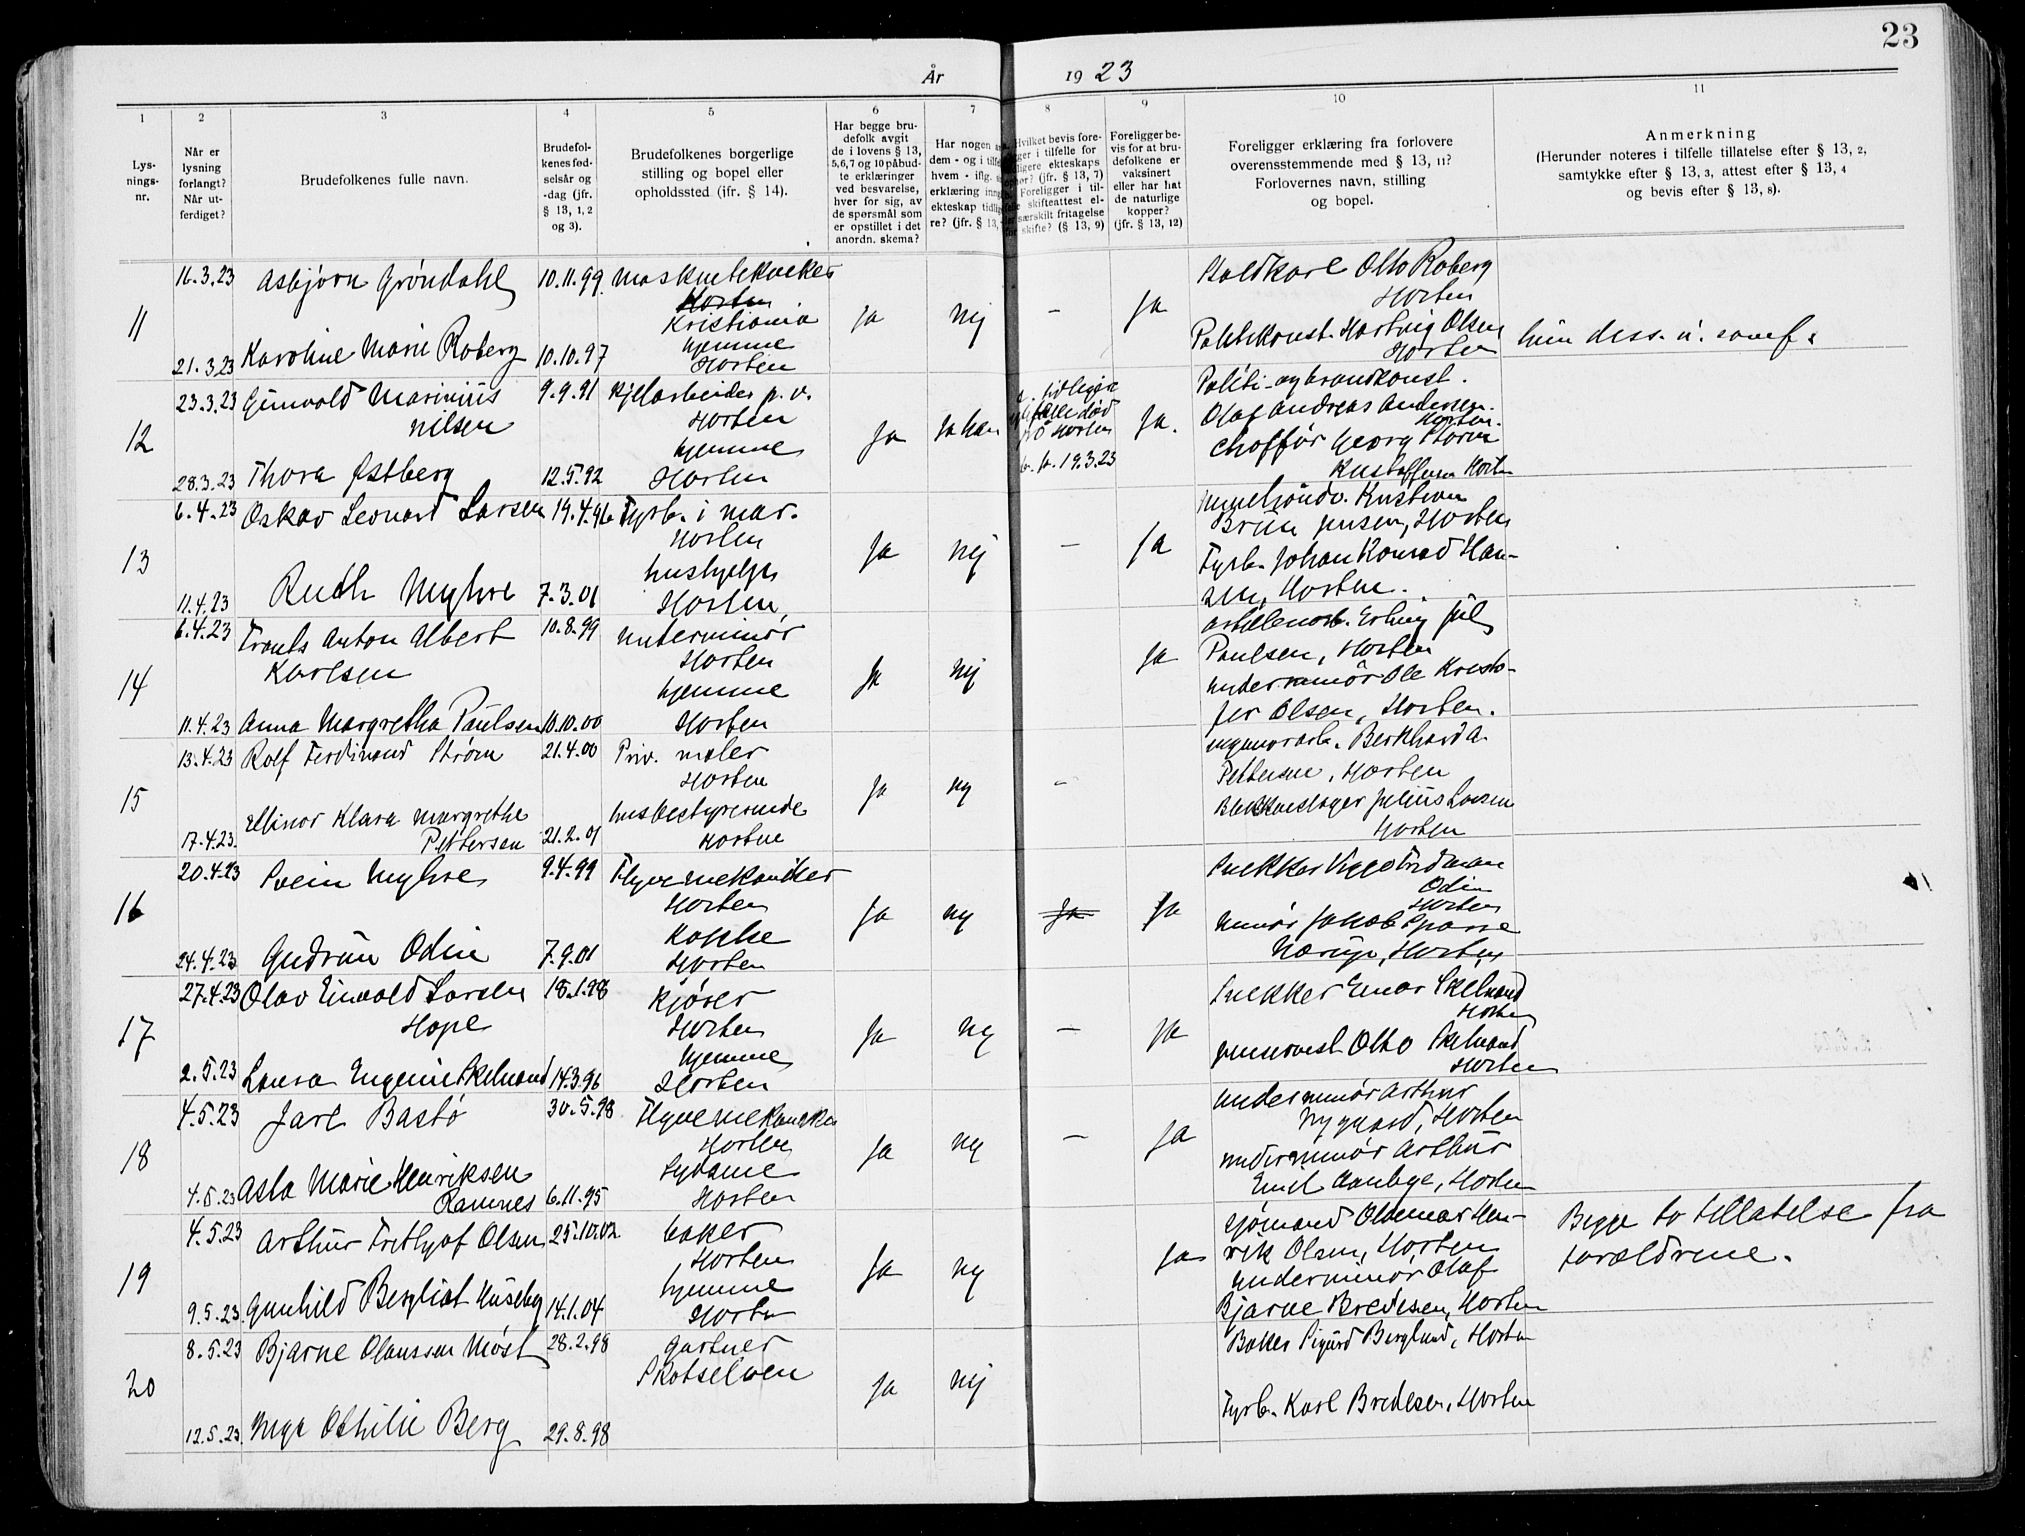 23
År 1923
1
2
3
4
5
6
7
8
9
10
11
Lys-
nings-
nr.
Når er
lysning
forlangt?
Når ut-
ferdiget?
Brudefolkenes fulle navn.
Brudefol-
kenes fød-
selsår og
-dag (jfr.
§ 13, 1, 2
og 3).
Brudefolkenes borgerlige
stilling og bopel eller
opholdssted (ifr. § 14).
Har begge bru-
defolk avgit
de i lovens § 13,
5,6,7 og 10 påbud-
te erklæringer
ved besvarelse,
hver for sig, av
de spørsmål som
er opstillet i det
anordn. skema?
Har nogen
dem - og i tilfe
hvem - iflg.
erklæring inng
ekteskap tidlig
re? (jfr. § 13,
Hvilket bevis fore-
ger i tilfelle for
ligere ekteskaps
ophør? (jfr. § 13, 7)
Foreligger i til-
skifteattest el-
særskilt fritagelse
for skifte? (§ 13, 9)
Foreligger be-
vis for at bru-
defolkene er
vaksinert
eller har hat
de naturlige
kopper?
(jfr. § 13, 12)
Foreligger erklæring fra forlovere
overensstemmende med § 13, 11?
Forlovernes navn, stilling
og bopel.
Anmerkning
(Herunder noteres i tilfelle tillatelse efter § 13, 2,
samtykke efter § 13, 3, attest efter § 13, 4
og bevis efter § 13, 8).
11
16.3.23 Asbjørn Grøndahl 10.11.99
Horten
Kristiania
21.3.23 Karoline Marie Roberg 10.10.97 hjemme
Horten
Ja nej - Ja
Otto Roberg
Horten
Hartvig Olsen
Horten
12
23.3.23 Gunvald Marinius
Nilsen
9.9.91 Kjelarbeider p. v.
Horten
28.3.23 Thora Østberg 12.5.92 hjemme
Horten
Ja Ja han
Horten
19.3.23
Ja.
Politi- og brandkonst.
Olaf Andreas Andersen.
Horten.
Choffør Georg Storm
Kristoffersen Horten
13
6.4.23 Oskar Leonard Larsen 19.4.96 Fyrb. i mar.
Horten
11.4.23 Ruth Myhre 7.3.01 hushjelp
Horten,
Ja nej - Ja
Kristian
Bruu Jensen, Horten
Fyrb. Johan Konrad Han-
sen, Horten.
14
6.4.23 Frants Anton Albert
Karlsen
10.8.99 Underminør
Horten
11.4.23 Anna Margretha Paulsen 10.10.00 hjemme
Horten
Ja nej Ja
Erling Jul
Paulsen, Horten
Underminør Ole Kristo-
fer Olsen, Horten.
15
13.4.23 Rolf Ferdinand Strøm 21.4.00 Priv. maler
Horten
17.4.23. Ellinor Klara Margrethe
Pettersen
21.2.01 husbestyrerinde
Horten
Ja nej -
Berkhard A.
Pettersen, Horten
Blikkenslager Julius Larsen
Horten
16
20.4.23 Svein Myhre 9.4.99 Flyvemekaniker
Horten
24.4.23 Gudrun Odin 7.9.01 Kokke
Horten
Ja nej Ja Ja
Snekker Viggo Fridman
Odin
Horten
Minør Jakob Sparre
Nærup, Horten
17
27.4.23 Olav Einvald Larsen
Hope
18.1.98 Kjører
Horten
2.5.23 Laura Eugenie Skelnand 14.3.96 hjemme
Horten
Ja nej - Ja
Snekker Einar Skelnand
Horten
Otto Skelnand
Horten
18
4.5.23 Jarl Bastø 30.5.98 Flyvemekaniker
Horten
4.5.23 Asta Marie Henriksen
Ramnes
6.11.95 Sydame
Horten
Ja nej - Ja
Underminør Arthur
Nygaard, Horten
Underminør Arthur
Emil Aanbye, Horten
19
4.5.23 Arthur Frithjof Olsen 25.10.02 baker
Horten
9.5.23. Gunhild Bergliot Huseby 14.1.04 hjemme
Horten
Ja nej Ja
Sjømand Oldemar Hen-
rik Olsen, Horten
Underminør Olaf
Bjarne Bredesen, Horten
Begge to tillatelse fra
forældrene.
20
8.5.23 Bjarne Olaussen Møst 28.2.98 Gartner
Skotselven
12.5.23. Inga Othilie Berg 29.8.98
Ja nej
Baker Sigurd Berglund, Horten
Fyrb. Karl Bredesen, Horten